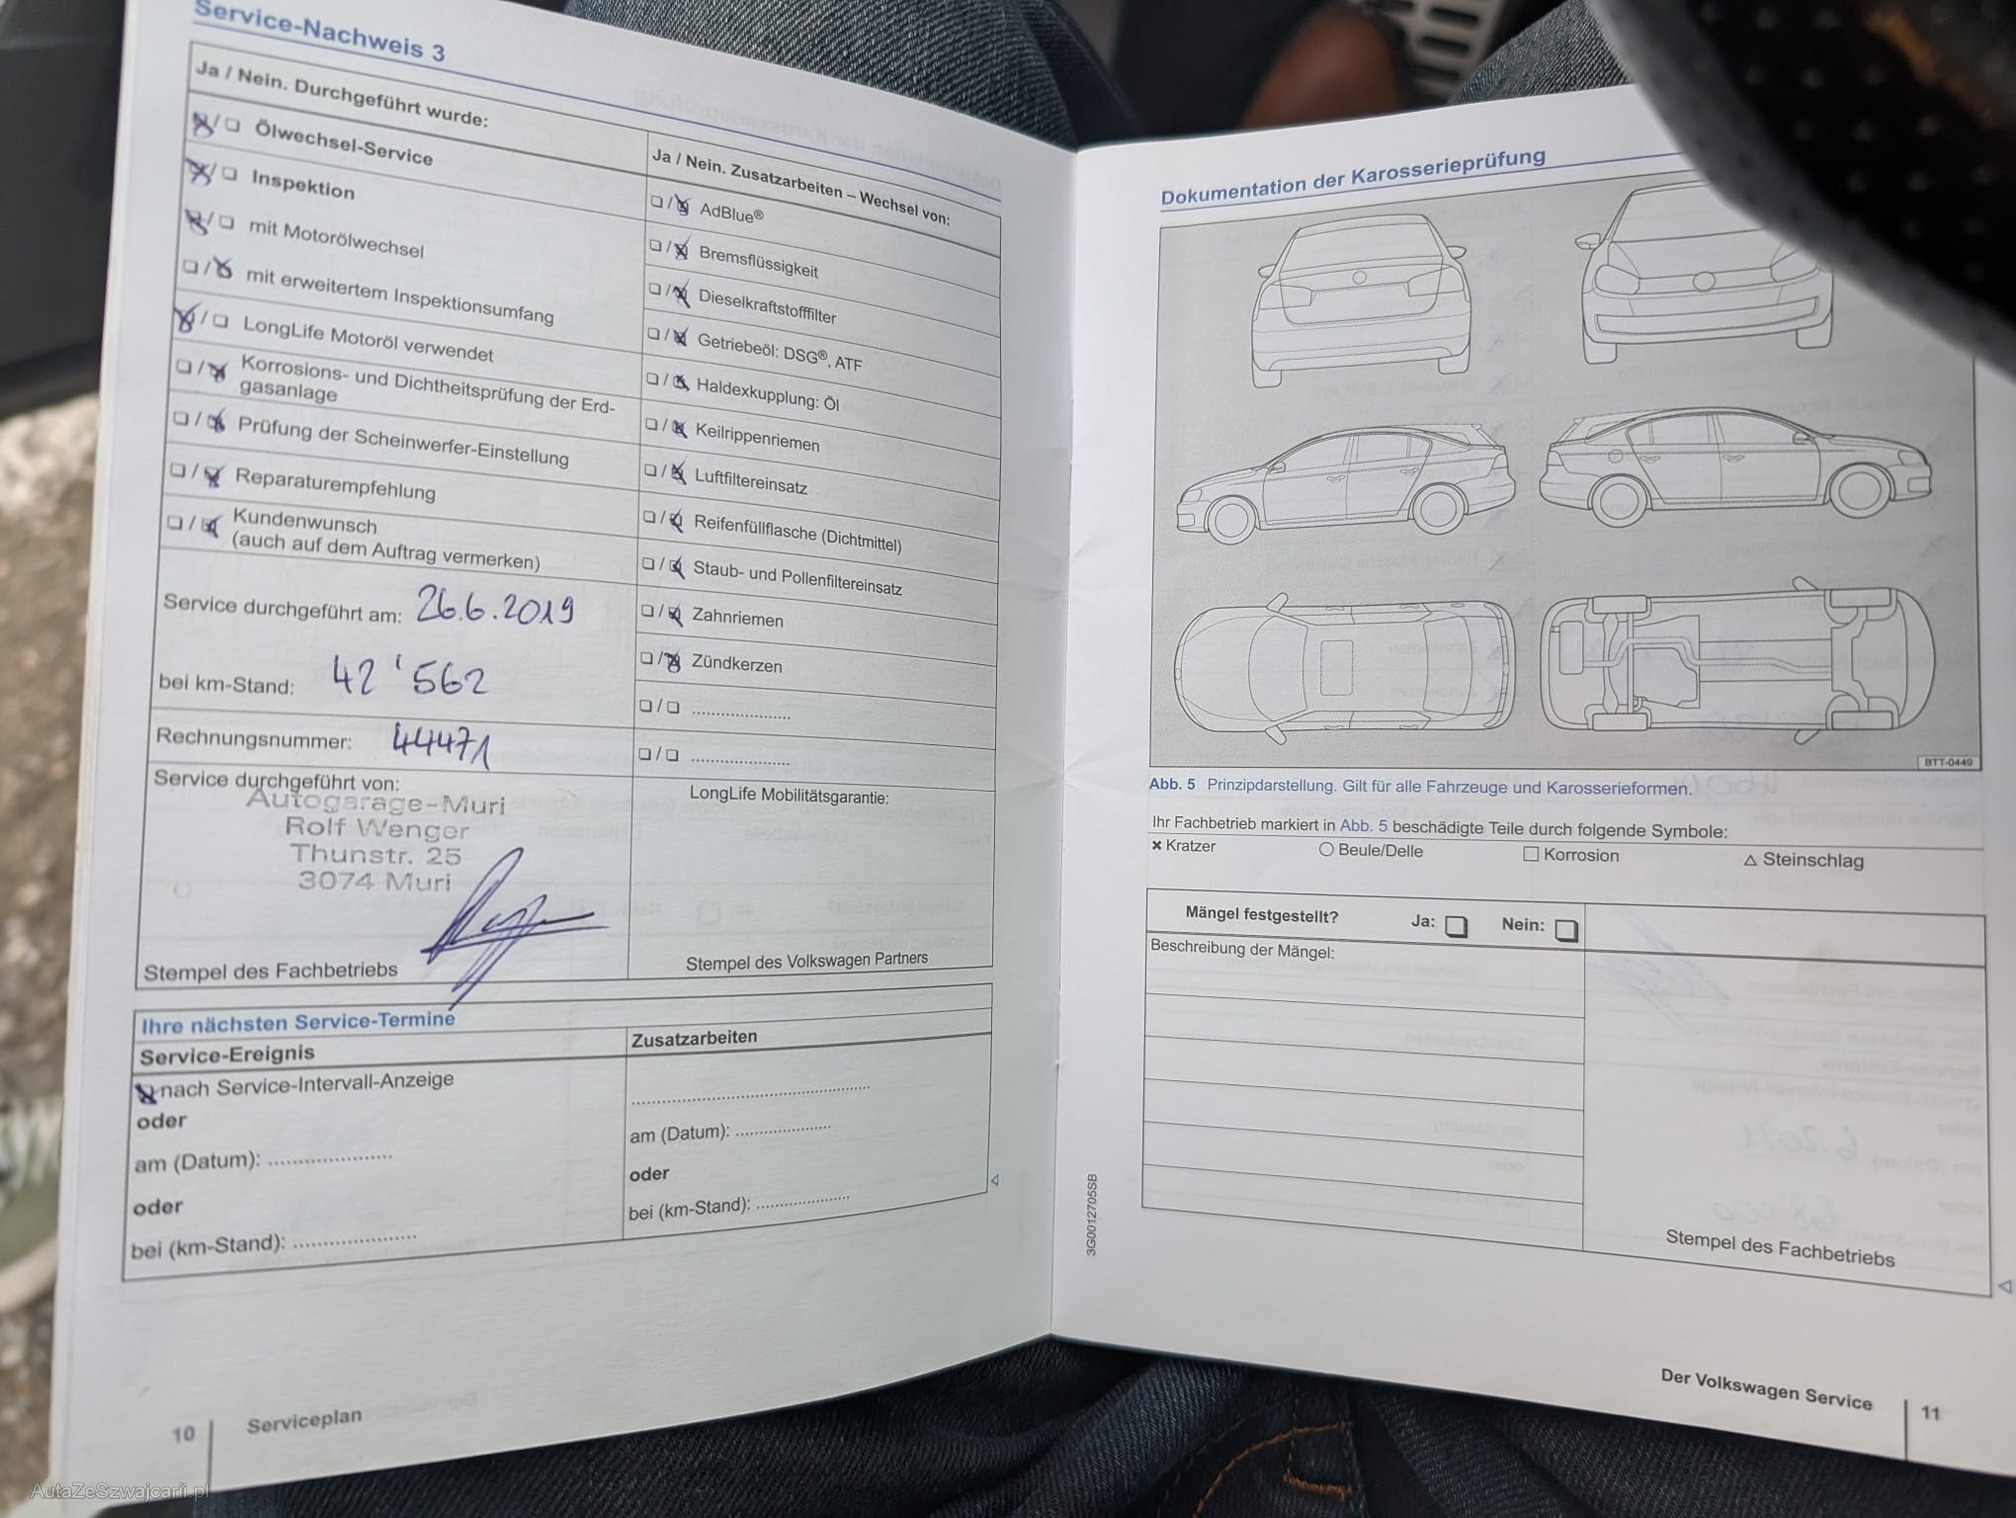 Service-Nachweis 3
Ja / Nein. Durchgeführt wurde:
Ölwechsel-Service
Inspektion
mit Motorölwechsel
mit erweitertem Inspektionsumfang
LongLife Motoröl verwendet
Korrosions- und Dichtheitsprüfung der Erd-
gasanlage
Prüfung der Scheinwerfer-Einstellung
Reparaturempfehlung
Kundenwunsch
(auch auf dem Auftrag vermerken)
Service durchgeführt am: 26.6.2019
bei km-Stand: 42'562
Rechnungsnummer: 44471
Service durchgeführt von:
Autogarage-Muri
Rolf Wenger
Thunstr. 25
3074 Muri
Stempel des Fachbetriebs
Ja / Nein. Zusatzarbeiten – Wechsel von:
AdBlue®
Bremsflüssigkeit
Dieselkraftstofffilter
Getriebeöl: DSG®, ATF
Haldexkupplung: Öl
Keilrippenriemen
Luftfiltereinsatz
Reifenfüllflasche (Dichtmittel)
Staub- und Pollenfiltereinsatz
Zahnriemen
Zündkerzen
LongLife Mobilitätsgarantie:
Stempel des Volkswagen Partners
Ihre nächsten Service-Termine
Service-Ereignis
nach Service-Intervall-Anzeige
oder
am (Datum): ....................
oder
bei (km-Stand): ....................
Zusatzarbeiten
am (Datum): ....................
oder
bei (km-Stand): ....................
10 Serviceplan
AutaZeSzwajcarii.pl
Dokumentation der Karosserieprüfung
BTT-0449
Abb. 5 Prinzipdarstellung. Gilt für alle Fahrzeuge und Karosserieformen.
Ihr Fachbetrieb markiert in Abb. 5 beschädigte Teile durch folgende Symbole:
× Kratzer ○ Beule/Delle □ Korrosion △ Steinschlag
Mängel festgestellt? Ja: Nein:
Beschreibung der Mängel:
Stempel des Fachbetriebs
3G0012705SB
Der Volkswagen Service 11